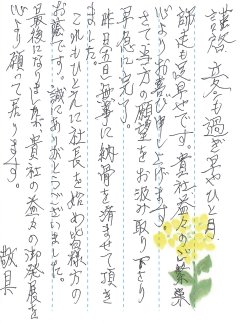 謹啓 立冬も過ぎ早やひと月
師走も足早やです。貴社益々のご繁栄
心よりお喜び申し上げます。
さて当方の願望をお汲み取り下さり
早急に完了。
昨日五日無事に納骨を済ませて頂き
ました。
これもひとえに社長を始め皆様方の
お蔭です。誠にありがとうございました。
最後になりましたが貴社の益々の御発展を
心より願って居ります。
敬具